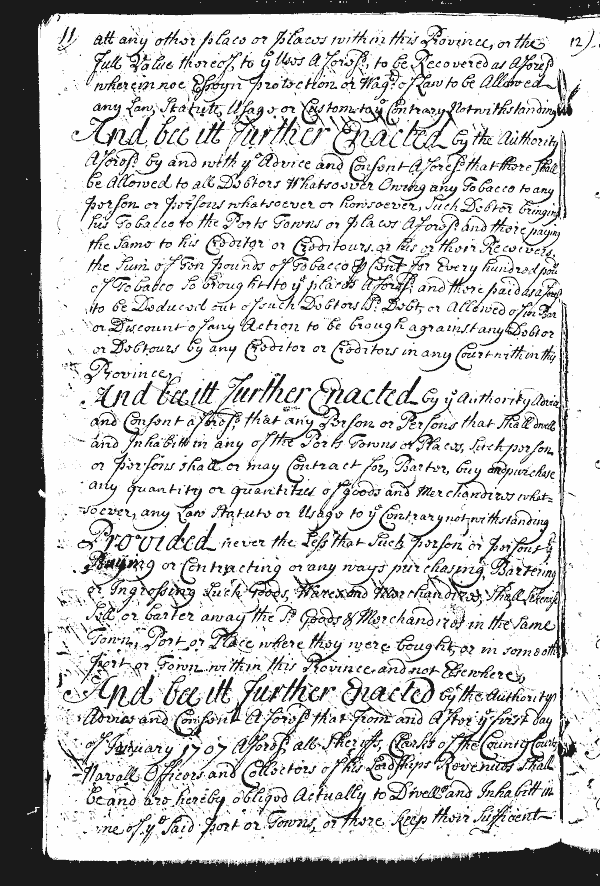 11
att any other place or places within this Province, or the
full Value thereof, to yᵉ Uses Aforesᵈ, to be Recovered as Aforesᵈ
wherein noe Essoyn protection or Wagᵉ of Law to be Allowed
any Law, Statute, Usage or Custom to yᵉ Contrary Notwithstanding
And bee itt Further Enacted by the Authority
Aforesᵈ by and with yᵉ Advice and Consent Aforesᵈ that there shall
be Allowed to all Debtors Whatsoever Owing any Tobacco to any
person or persons whatsoever or howsoever, Such Debtor bringing
his Tobacco to the Ports Towns or places Aforesᵈ and there paying
the Same to his Creditor or Creditours or his or their Receivers
the Sum of Ten pounds of Tobacco ⅌ Cent For Every hundred
of Tobacco So brought to yᵉ places Aforesᵈ, and there paid
to be Deduced out of such Debtors sᵈ Debt, or Allowed
or Discount of any Action to be brough against any Debtor
or Debtours by any Creditor or Creditors in any Court within this
Province
And bee itt Further Enacted by yᵉ Authority Advice
and Consent aforesᵈ that any Person or Persons that Shall dwell
and Inhabitt in any of the Ports Towns or Places, Such person
or persons shall or may Contract for, Barter, buy purchase
any quantity or quantities of goods and Merchandizes what-
soever, any Law Statute or Usage to yᵉ Contrary not withstanding
Provided never the Less that Such person or persons
Buying or Contracting or any ways purchasing, Bartering
or Ingrossing Such Goods, Wares and Merchandizes, Shall
Sell or barter away the sᵈ Goods & Merchandizes in the Same
Town, Port or Place where they were bought, or in some oth
Port or Town within this Province and not Elsewhere,
And bee itt Further Enacted by the Authority
Advice and Consent Aforesᵈ that from and After yᵉ first day
of January 1707 Aforesᵈ, all Sheriffs, Clarks of the County Courts
Navall Officers and Collectors of his Lordships Revenues Shall
be and are hereby obliged Actually to Dwell and Inhabitt in
of yᵉ Said Port or Towns, or there keep their Sufficient
12